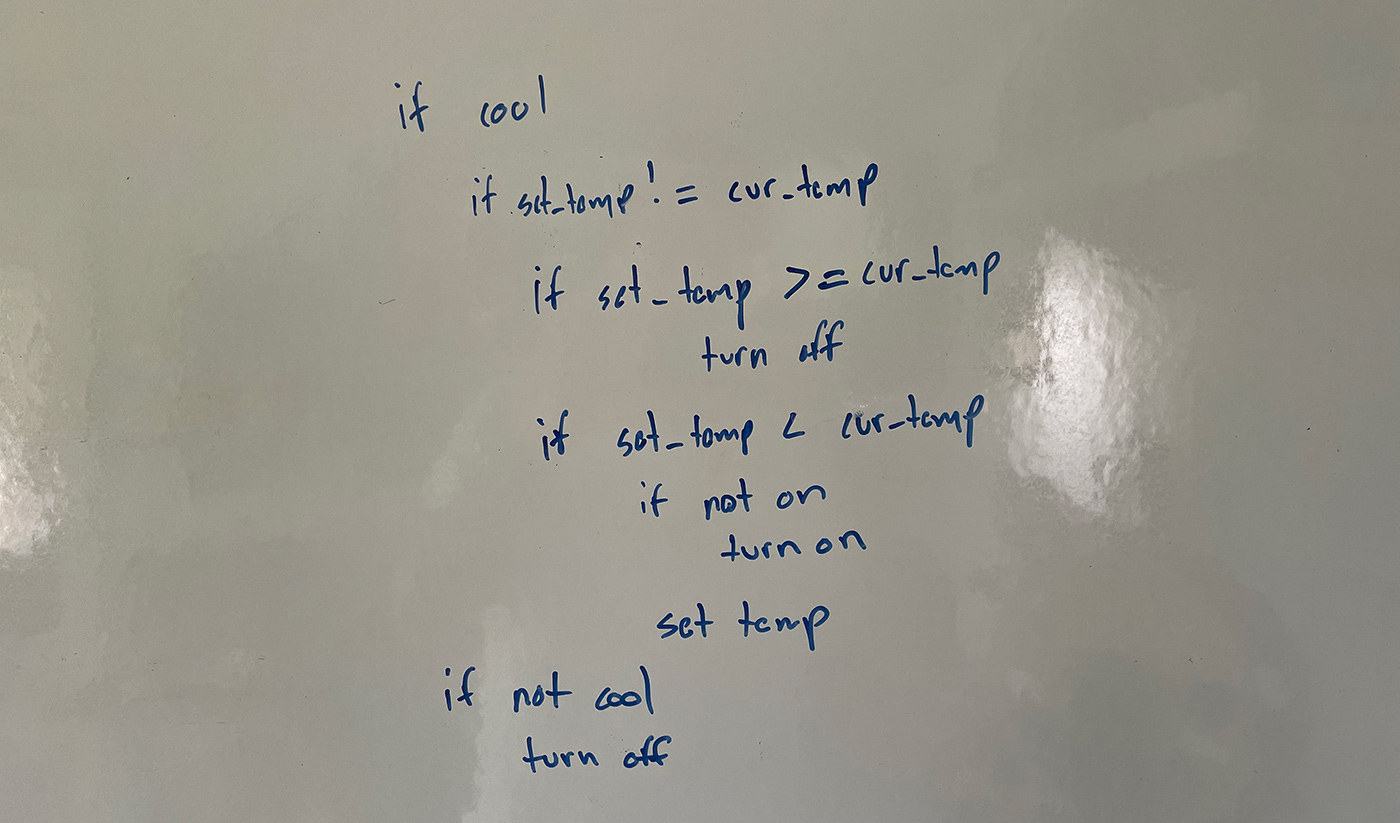 if cool
if set_temp != cur_temp
if set_temp >= cur_temp
turn off
if set_temp < cur_temp
if not on
turn on
set temp
if not cool
turn off